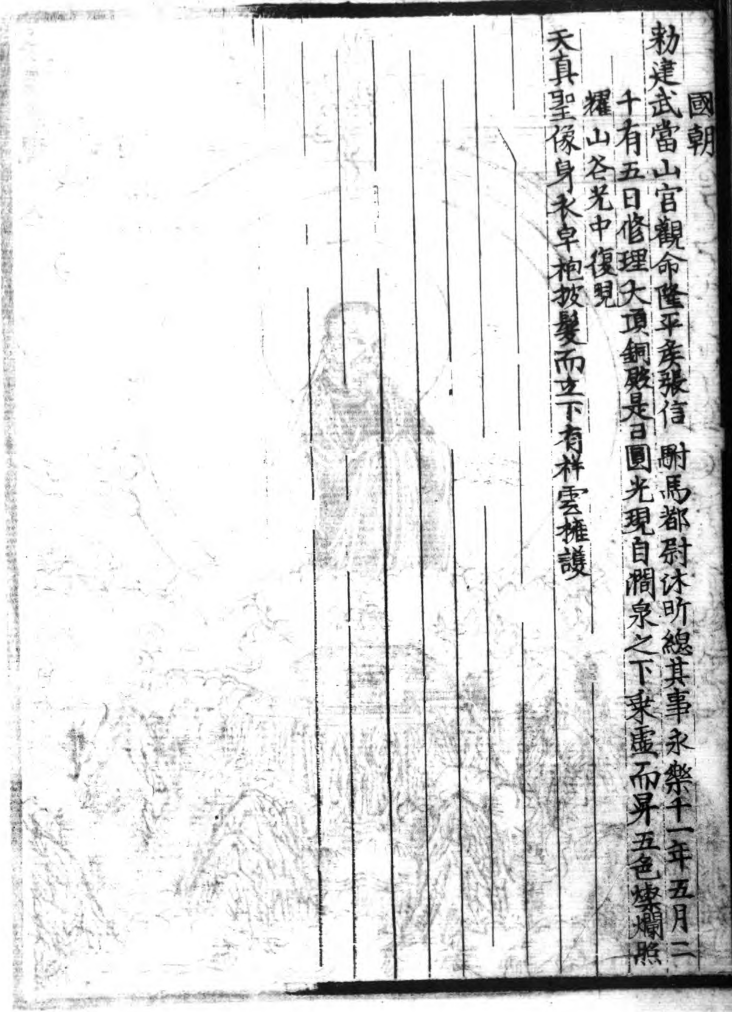 國朝
勑建武當山宮觀命隆平侯張信 駙馬都尉沐昕總其事永樂十一年五月二
十有五日修理大頂銅殿是日圓光現自澗泉之下乘虛而昇五色燦爛照
耀山谷光中復現
天真聖像身衣皁袍披髮而立下有祥雲擁護